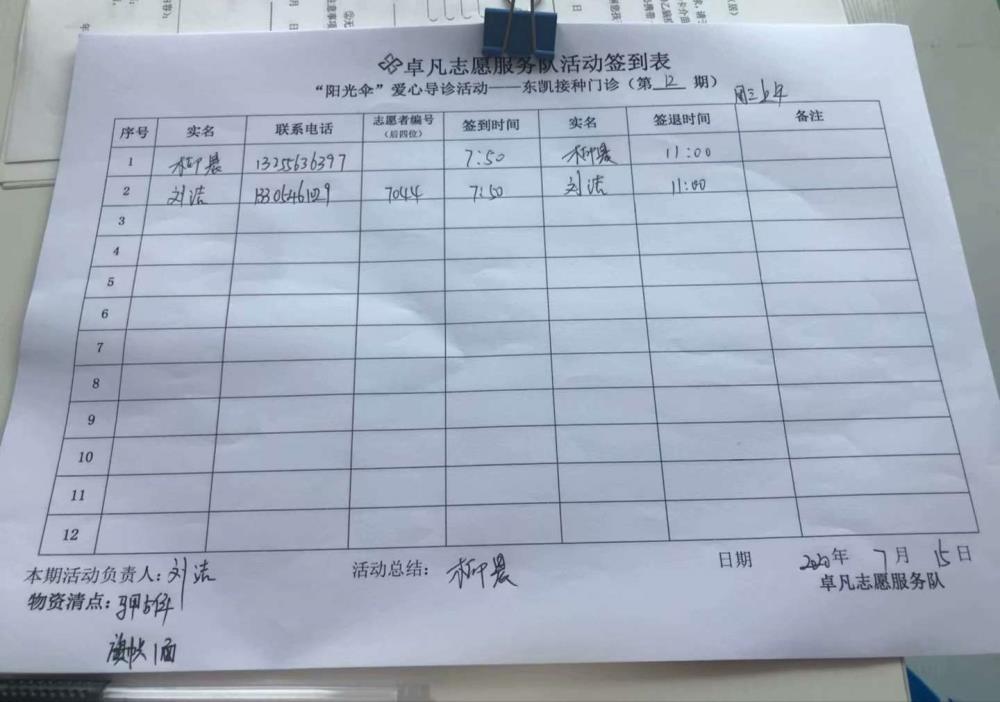 卓凡志愿服务队活动签到表
“阳光伞”爱心导诊活动——东凯接种门诊（第 12 期） 周三上午
序号 实名 联系电话 志愿者编号（后四位） 签到时间 实名 签退时间 备注
1 柳晨 13255636397 7:50 柳晨 11:00
2 刘洁 7044 7:50 刘洁 11:00
3
4
5
6
7
8
9
10
11
12
本期活动负责人：刘洁 活动总结：柳晨 日期 2020年 7月 15日
物资清点： 卓凡志愿服务队
旗帜1面